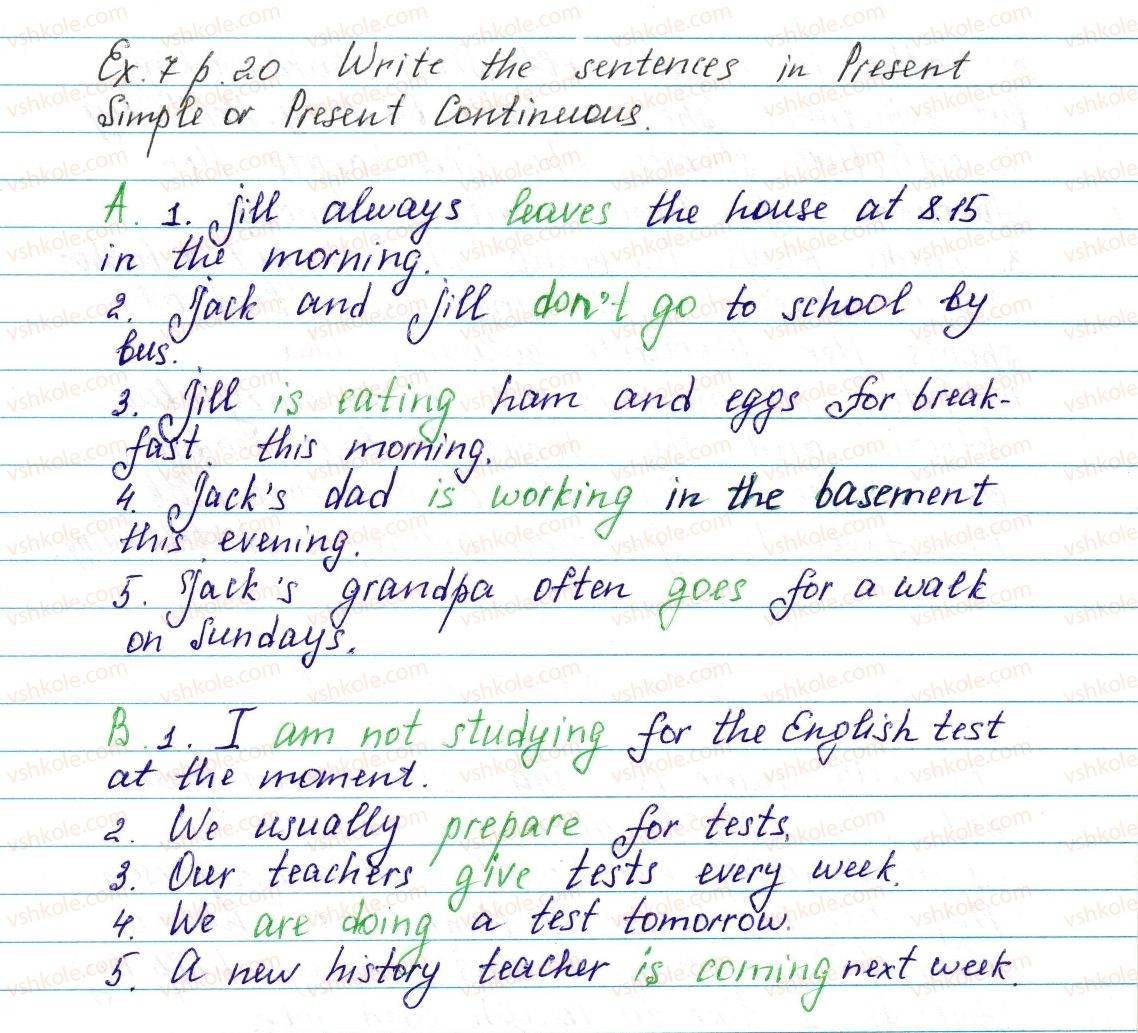 Ex. 7 p. 20 Write the sentences in Present
Simple or Present Continuous.
A. 1. Jill always leaves the house at 8.15
in the morning.
2. Jack and Jill don't go to school by
bus.
3. Jill is eating ham and eggs for break-
fast this morning.
4. Jack's dad is working in the basement
this evening.
5. Jack's grandpa often goes for a walk
on Sundays.
B. 1. I am not studying for the English test
at the moment.
2. We usually prepare for tests.
3. Our teachers give tests every week.
4. We are doing a test tomorrow.
5. A new history teacher is coming next week.
vshkole.com